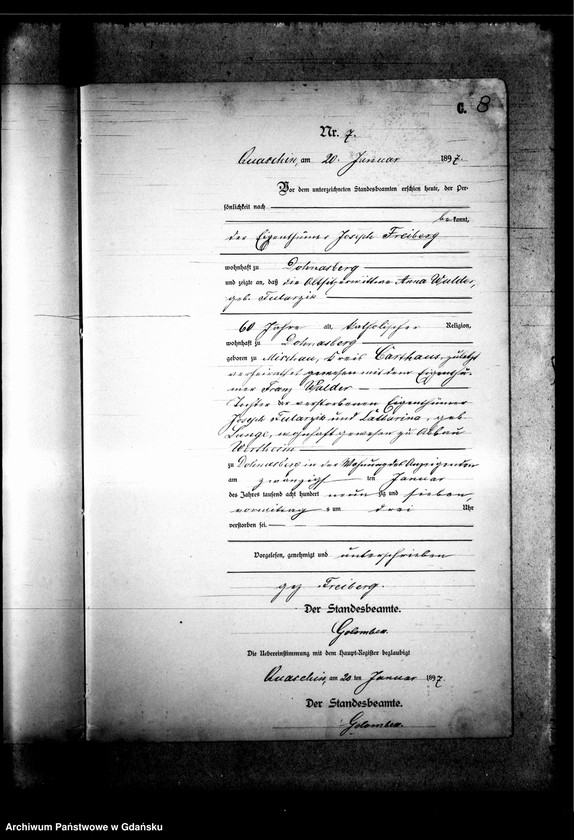 C. 8
Nr. 7.
Quaschin, am 20. Januar 1897.
Vor dem unterzeichneten Standesbeamten erschien heute, der Per-
sönlichkeit nach
bekannt,
der Eigenthümer Joseph Freiberg
wohnhaft zu Dohnasberg
und zeigte an, daß die Altsitzerwittwe Anna Walder,
geb.
60 Jahre alt, katholischer Religion,
wohnhaft zu Dohnasberg
geboren zu Mirchau, Kreis Carthaus, zuletzt
verheirathet gewesen mit dem Eigenthü-
mer Franz Walder
Tochter der verstorbenen Eigenthümer
Joseph und Catharina, geb.
Lange, wohnhaft gewesen zu Abbau
Wertheim
zu Dohnasberg in der Wohnung des Anzeigenden
am zwanzigsten Januar
des Jahres tausend acht hundert neunzig und sieben,
vormittags um drei Uhr
verstorben sei.
Vorgelesen, genehmigt und unterschrieben
gez Freiberg.
Der Standesbeamte.
Golombek.
Die Uebereinstimmung mit dem Haupt-Register beglaubigt
Quaschin, am 20 ten Januar 1897.
Der Standesbeamte.
Golombek.
Archiwum Państwowe w Gdańsku